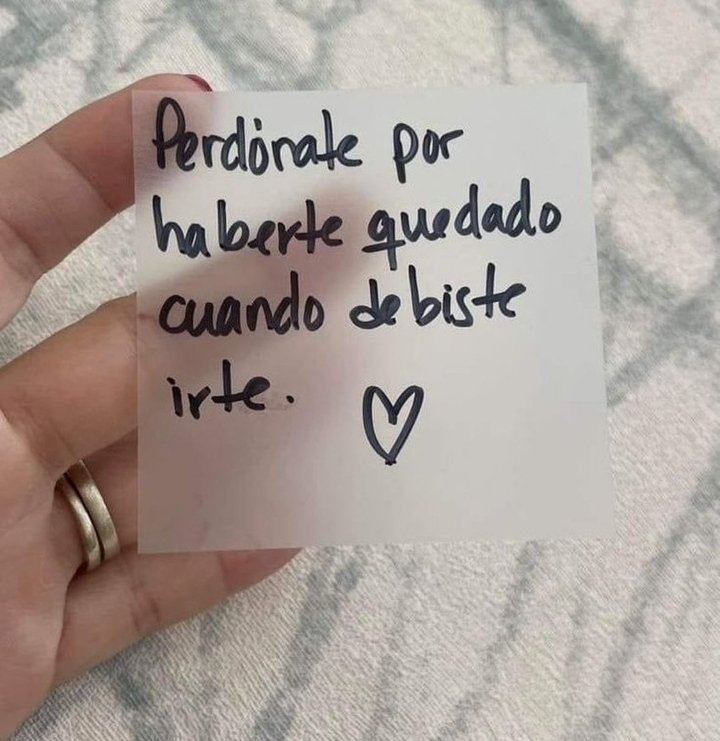 Perdónate por
haberte quedado
cuando debiste
irte. ♡